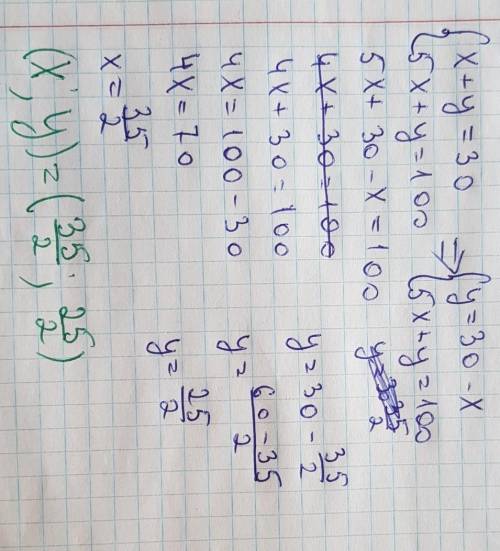 {x+y=30 => {y=30-x
{5x+y=100 {5x+y=100
5x+30-x=100
4x+30=100
4x+30=100
4x=100-30
4x=70
x=35/2
y=30-35/2
y=60-35/2
y=25/2
(x; y)=(35/2; 25/2)